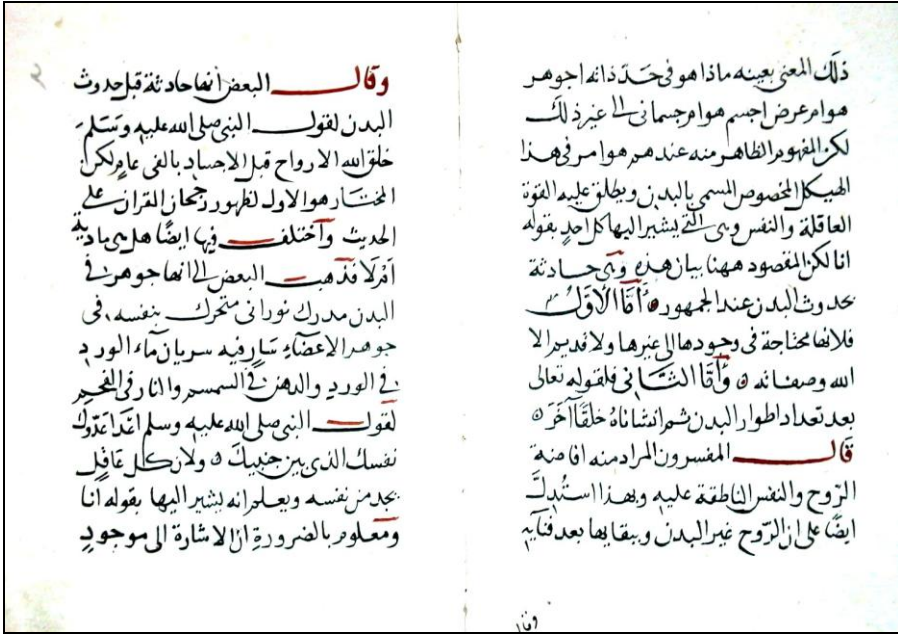 ذلك المعنى بعينه ماذا هو في حد ذاته اجوهر
هو ام عرض اجسم هو ام جسمانى الى غير ذلك
لكن المفهوم الظاهر منه عندهم هو امر فى هذا
الهيكل المخصوص المسمى بالبدن ويطلق عليه القوة
العاقلة والنفس وهى التي يشير اليها كل احد بقوله
انا لكن المقصود ههنا بيان هذه وهى حادثة
بحدوث البدن عند الجمهور ٥ أمّا الأوّل
فلانها محتاجة فى وجودها الى غيرها ولا قديم الا
الله وصفاته ٥ وأمّا الثّانى فلقوله تعالى
بعد تعداد اطوار البدن ثم انشاناهُ خلقًا آخر ٥
قال المفسرون المراد منه افاضة
الرّوح والنفس الناطقة عليه وبهذا استُدِلَّ
ايضًا على ان الرّوح غير البدن وببقايها بعد فنآيه
وقا
٢
وقال البعض انها حادثة قبل حدوث
البدن لقول النبى صلى الله عليه وسَلم
خلق الله الارواح قبل الاجساد بالفى عامٍ لكن
المختار هو الاول لظهور رجحان القرآن على
الحديث وآختلف فيها ايضًا هل هى مادية
أمْ لَا فذهبت البعض الى انها جوهر فى
البدن مدرك نورانى متحرك بنفسه فى
جوهر الاعضآءِ سَارٍ فيه سريان مآء الورد
فى الورد والدهن فى السمسم والنار فى الفحم
لقول النبى صلى الله عليه وسلم اعدَا عدُوك
نفسك الذى بين جنبيكَ ٥ ولان كل عَاقلٍ
يجد من نفسه ويعلم انه يشير اليها بقوله انا
ومعلوم بالضرورةِ ان الاشارة الى موجودٍ